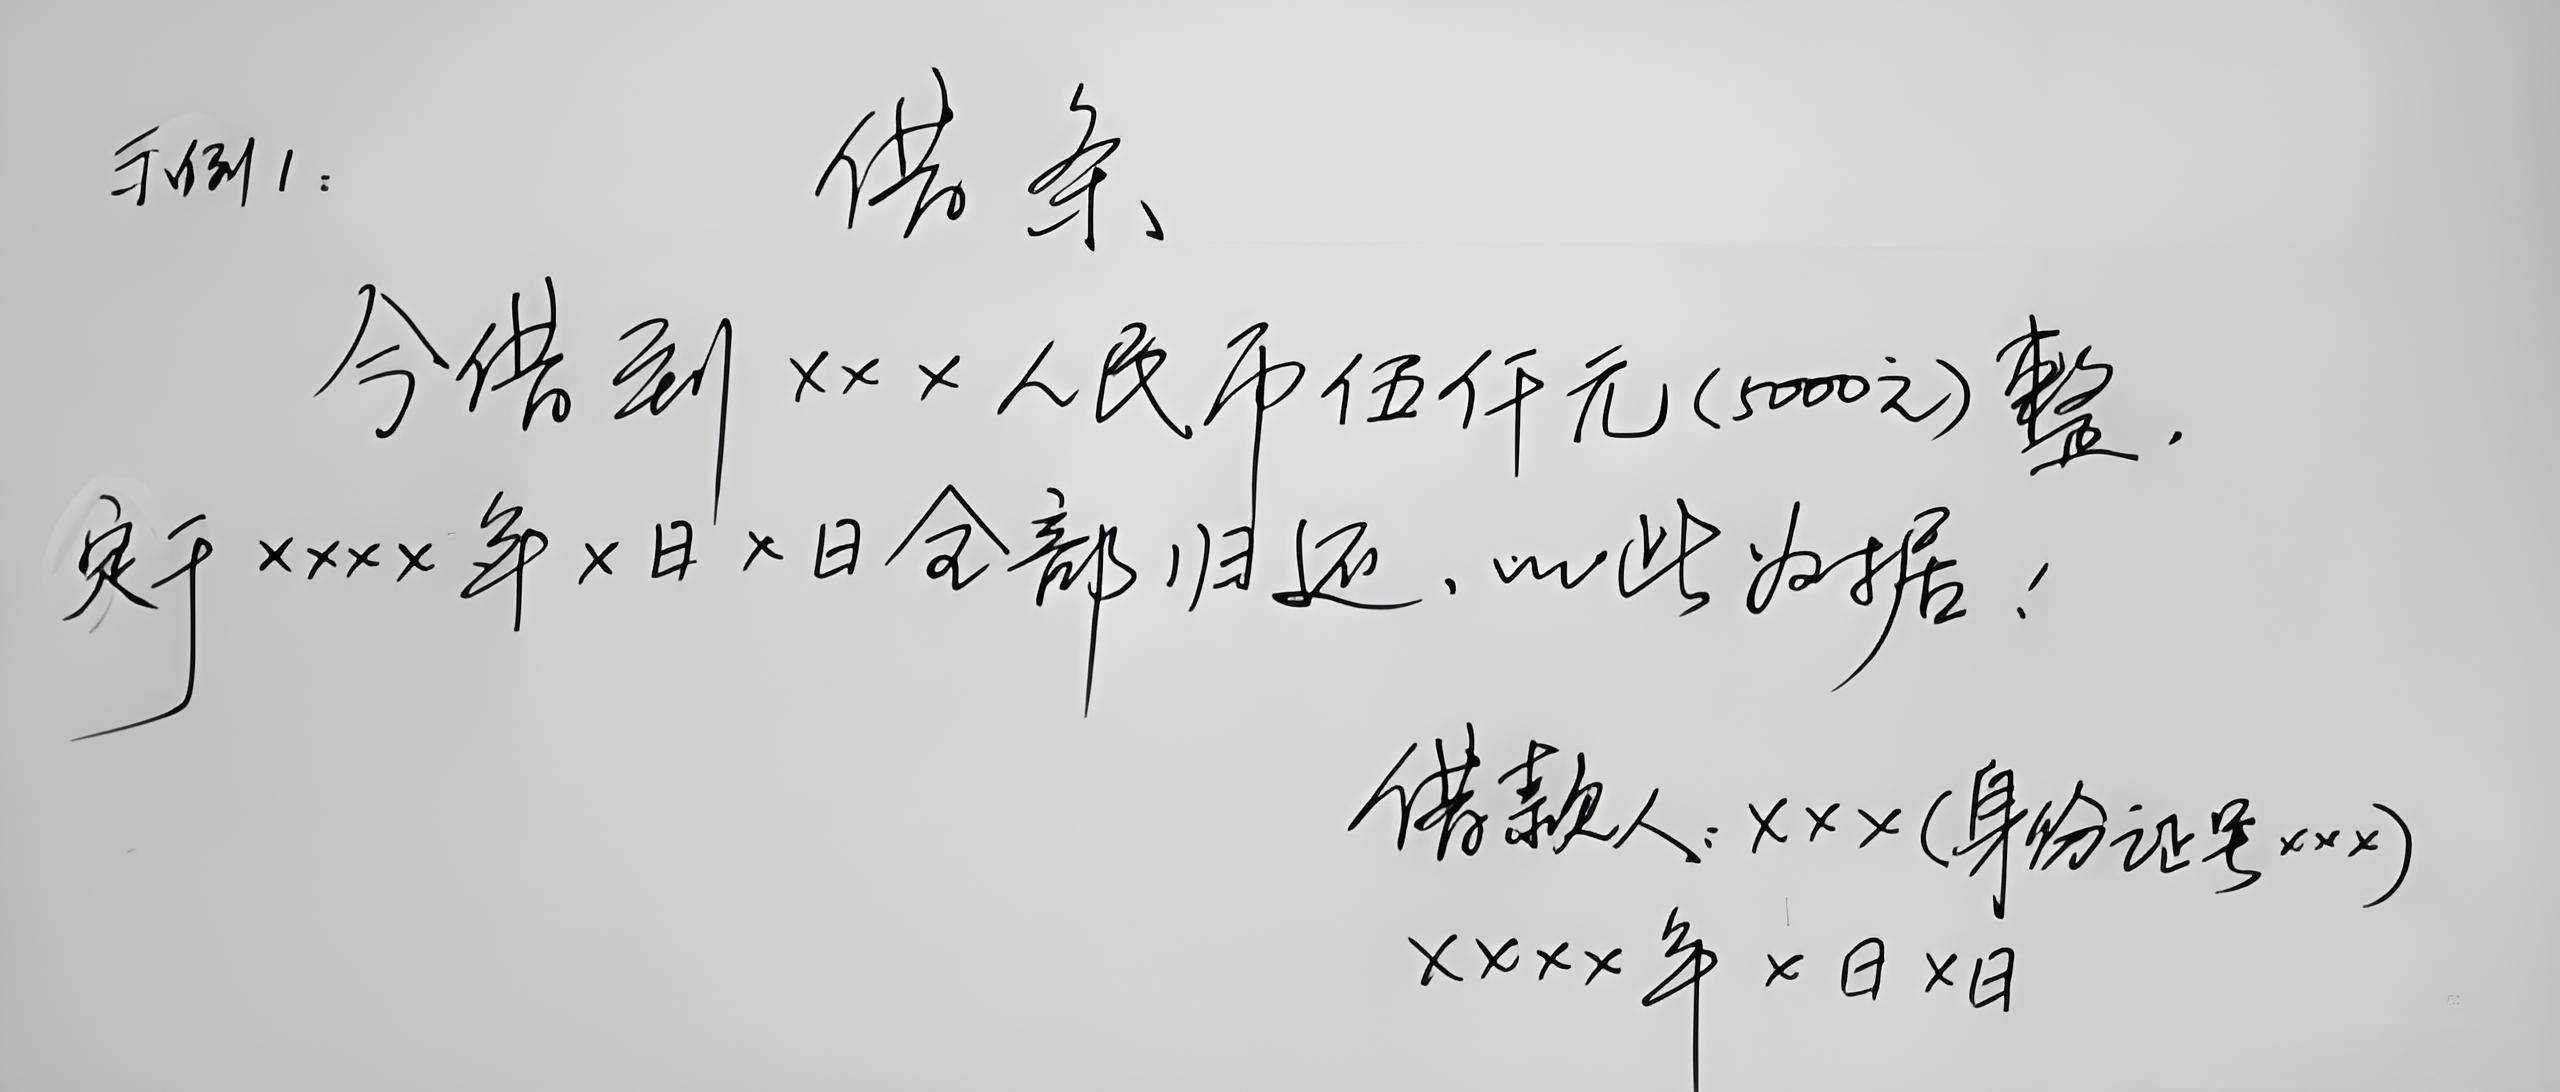 示例1:
借条、
今借到×××人民币伍仟元(5000元)整.
定于××××年×日×日全部归还、以此为据!
借款人:×××(身份证号×××)
××××年×日×日